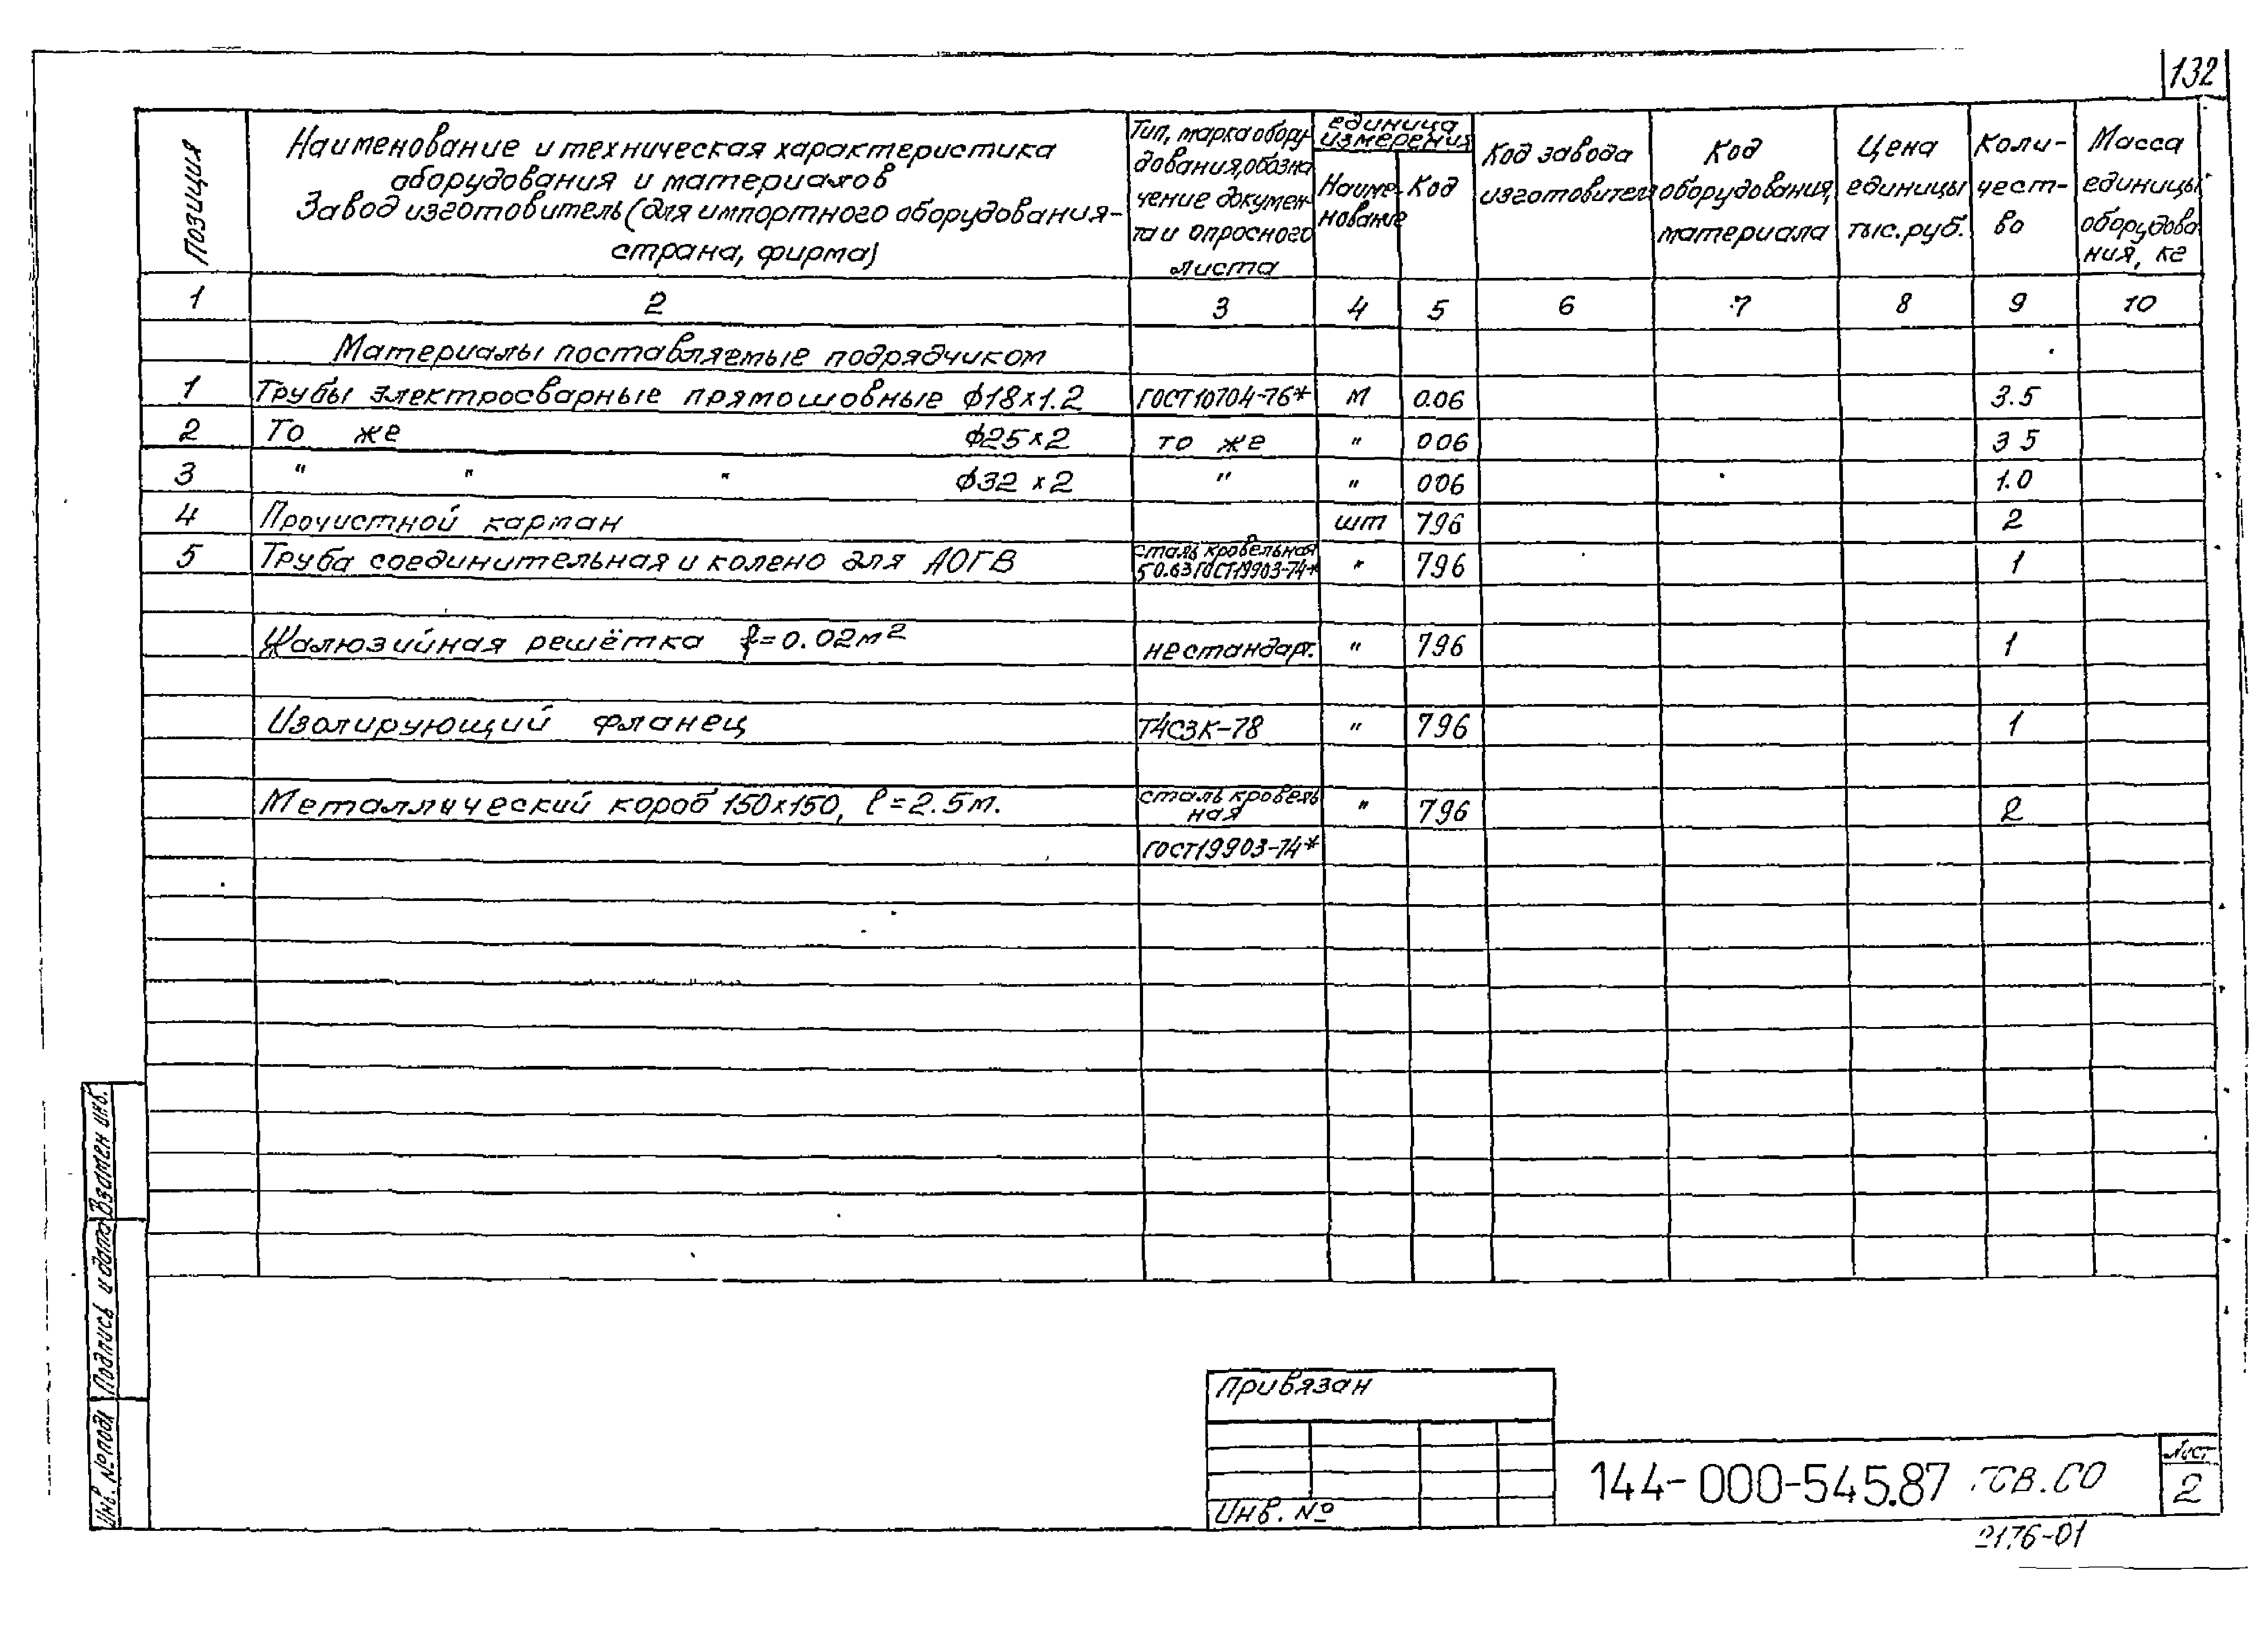 132
Позиция
Наименование и техническая характеристика
оборудования и материалов
Завод изготовитель (для импортного оборудования-
страна, фирма)
Тип, марка обору-
дования, обозна
чение докумен-
та и опросного
листа
единица
измерения
Наиме-
нование
Код
Код завода
изготовителя
Код
оборудования,
материала
Цена
единицы
тыс. руб.
Коли-
чест-
во
Масса
единицы
оборудова
ния, кг
1 2 3 4 5 6 7 8 9 10
Материалы поставляемые подрядчиком
1 Трубы электросварные прямошовные ф18х1.2 ГОСТ10704-76* м 006 3.5
2 То же ф25х2 то же " 006 3 5
3 " " " ф32 х2 " " 006 1.0
4 Прочистной карман шт 796 2
5 Труба соединительная и колено для АОГВ сталь кровельная
50.63 ГОСТ19903-74* " 796 1
Жалюзийная решётка f=0.02м² нестандарт. " 796 1
Изолирующий фланец Т4СЗК-78 " 796 1
Металлический короб 150х150, ℓ=2.5м. сталь кровель
ная " 796 2
ГОСТ19903-74*
Взамен инв.
Подпись и дата
Инв. № подл
Привязан
Инв. №
144-000-545.87 ГСВ.СО
Лист
2
-01